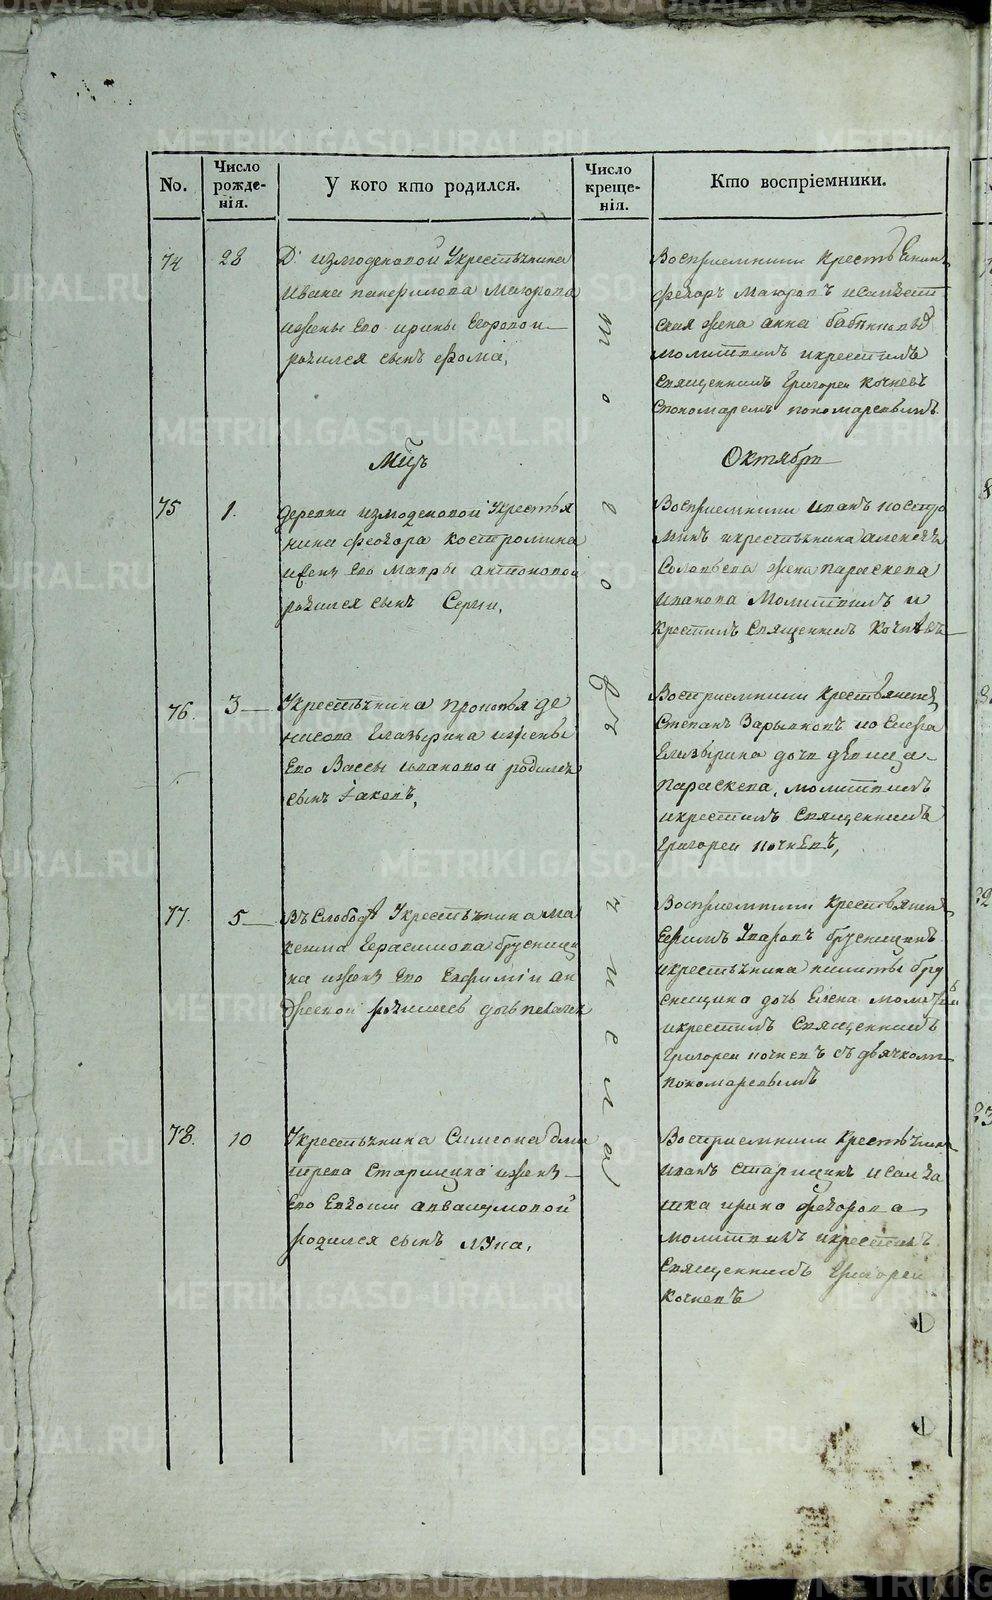 No.
Число рожденія.
У кого кто родился.
Число крещенія.
Кто воспріемники.
74
28
Д. измоденовой Укрестьянина
Ивана панфилова Маюрова
ижены Его ирины Егоровои
родился сынъ фома,
Восприемники крестьянинъ
федоръ Маюровъ исалдат
ская жена анна бабкиновы
молитвилъ икрестилъ
Священникъ Григореи Кочневъ
Спономаремъ пономаревымъ
тогоже числа
Мцъ
Октября
75
1.
деревни измоденовой Укрестья
нина феодора костромина
ижены Его Мавры антоновои
родился сынъ Сергии,
Восприемники иванъ костро
минъ икрестьянина алексея
Соловьева жена параскева
иванова Молитвилъ и
крестилъ Священникъ Кочневъ
76.
3
Укрестьянина прокопья де
нисова Глазырина ижены
Его Вассы ивановои родился
сынъ Іаковъ,
Восприемники крестьянинъ
Степанъ
Глазырина дочь девица
параскева, молитвилъ
икрестилъ Священникъ
Григореи кочневъ,
77.
5
Въ Слободе Укрестьянина ма
ксима Герасимова брусници
на ижены Его Евфиміи ан
дреевой родилась дочь пелагея
Восприемники крестьянинъ
Брусницынъ
икрестьянина никиты бру
сницина дочь Елена молитвилъ
икрестилъ Священникъ
Григореи кочневъ съ дьячкомъ
пономаревымъ
78.
10
Укрестьянина Симеона дми
триева Старицина ижены
Его Евдокии авваку мовой
родился сынъ лука,
Восприемники крестьянинъ
иванъ старицинъ исалда
тка ирина федорова
молитвилъ икрестилъ
Священникъ Григореи
кочневъ
METRIKI.GASO-URAL.RU